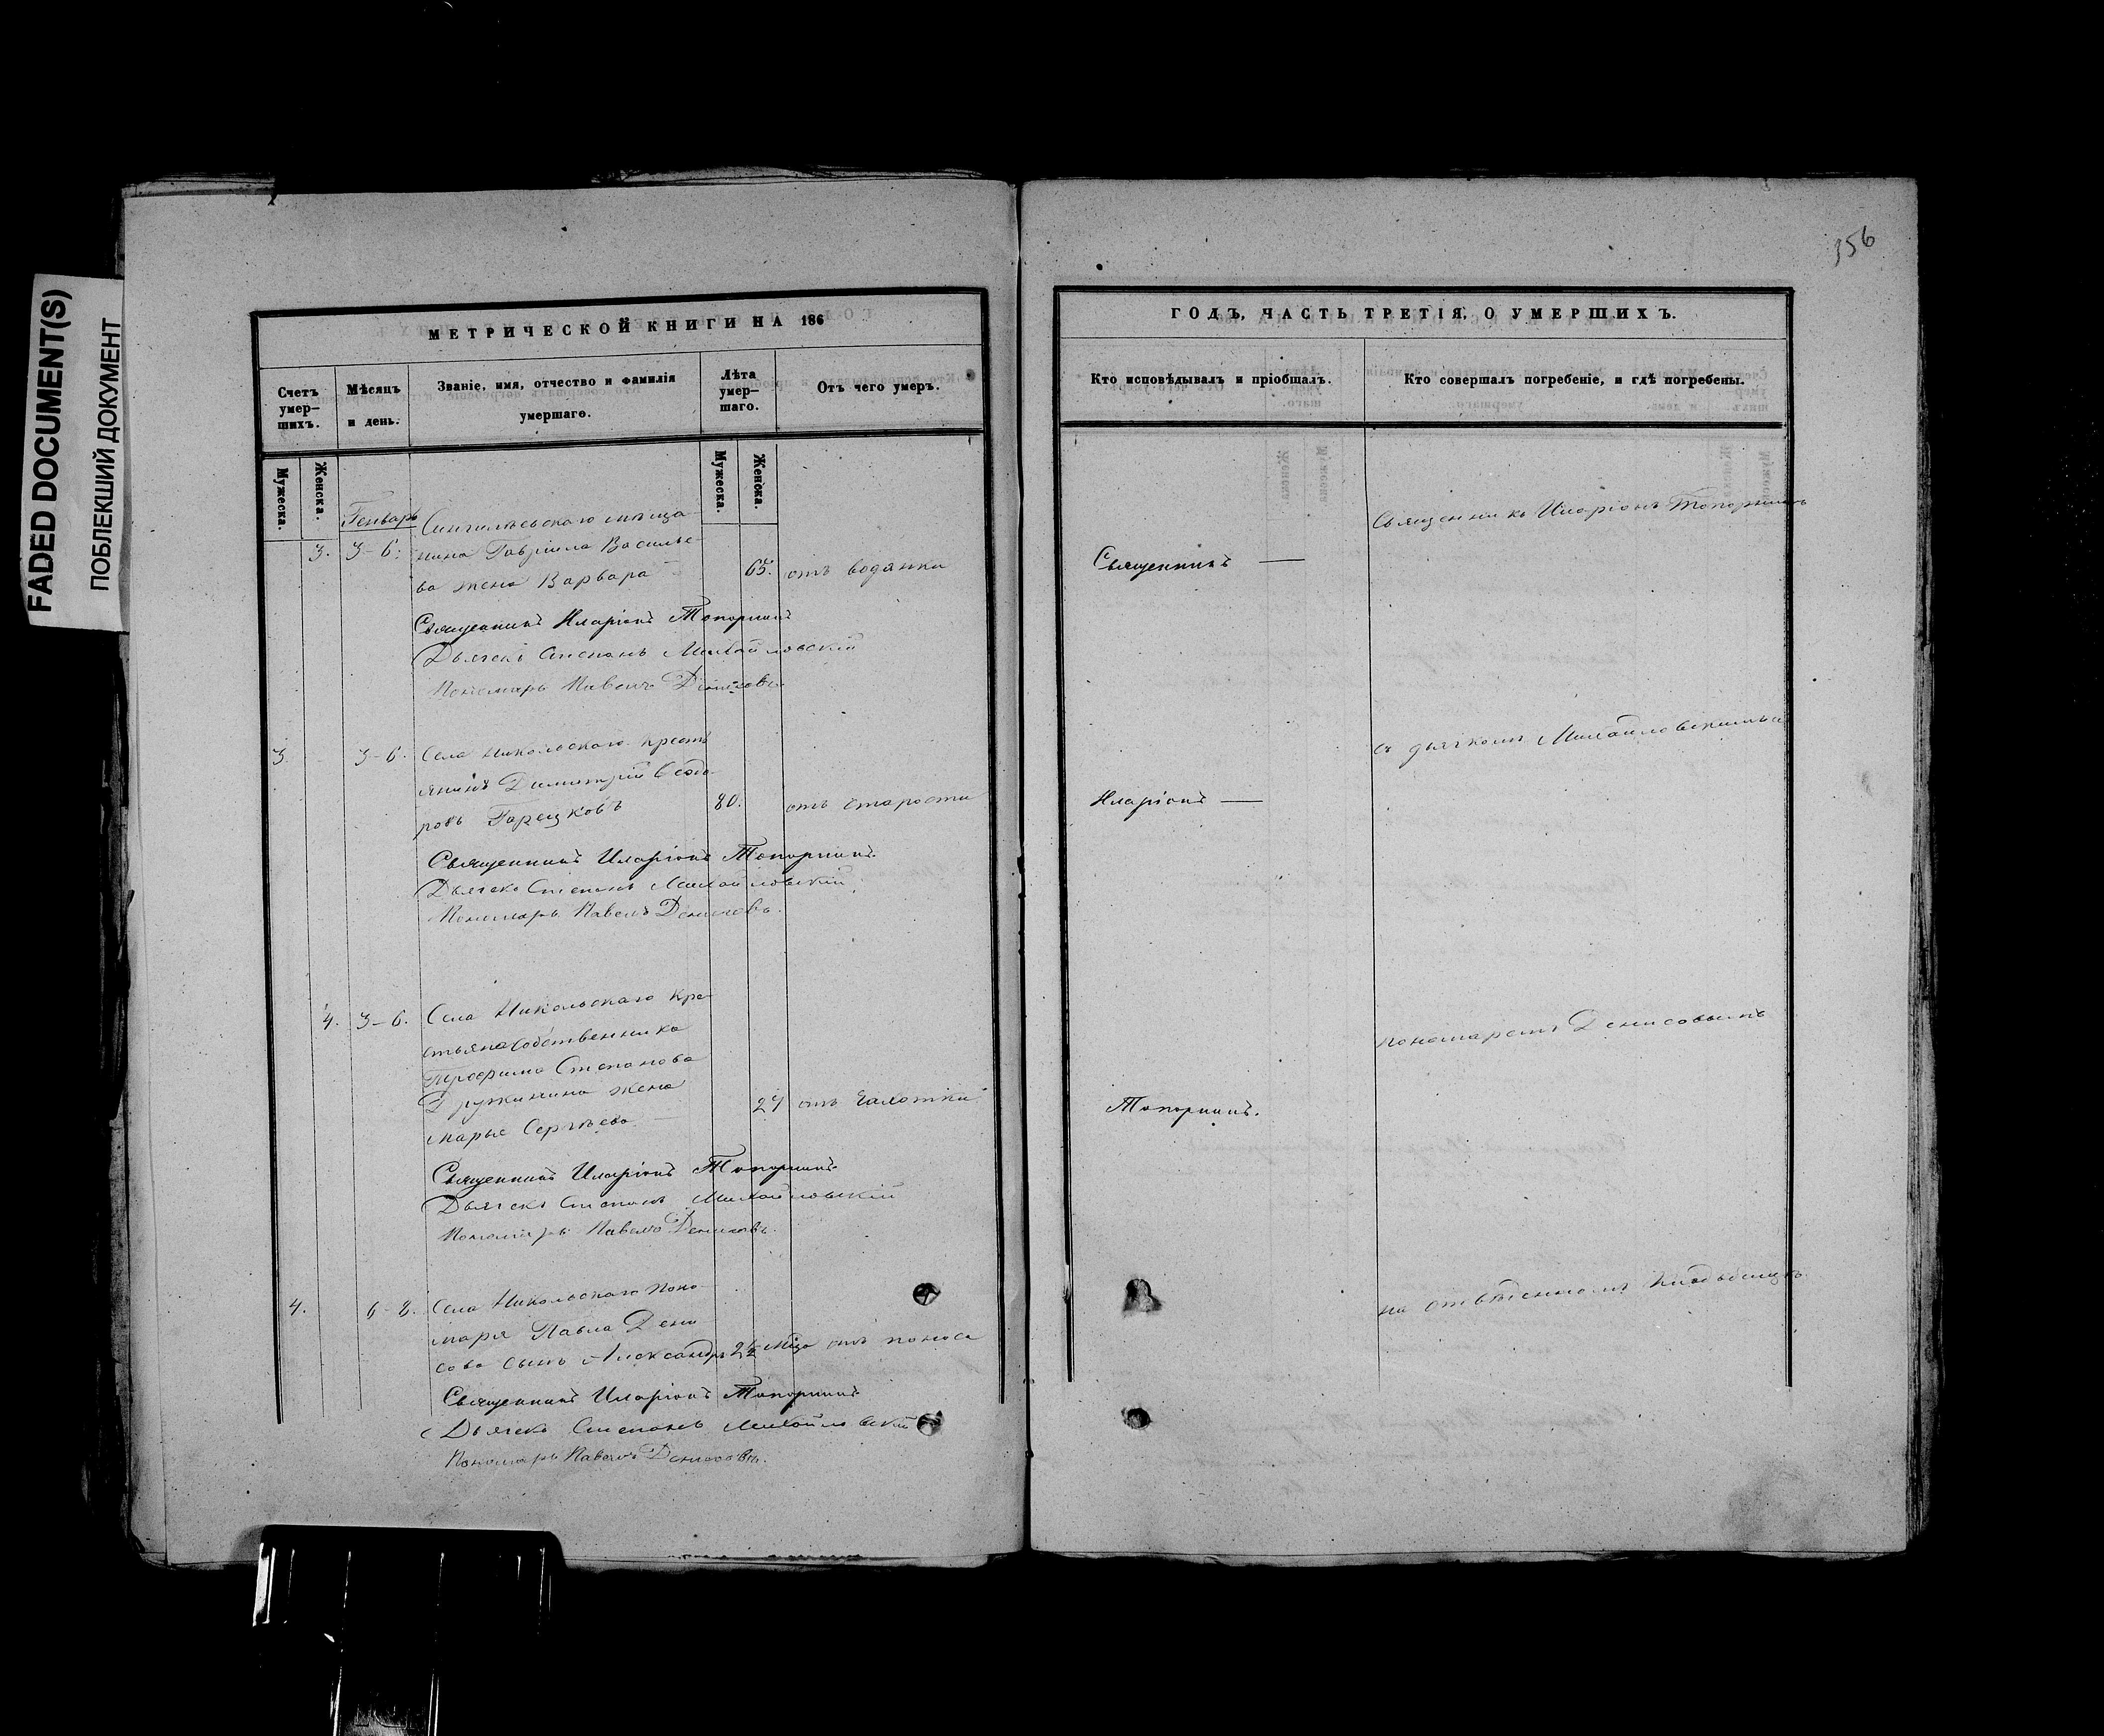 FADED DOCUMENT(S)
ПОБЛЕКШИЙ ДОКУМЕНТ
МЕТРИЧЕСКОЙ КНИГИ НА 186
Счетъ умер-шихъ.
Мѣсяцъ и день.
Званіе, имя, отчество и фамилія умершаго.
Лѣта умер-шаго.
Отъ чего умеръ.
Мужеска.
Женска.
Мужеска.
Женска.
Генварь
Сингилѣевскаго мѣща-
3. 3-6: нина Гавріила Василье-
ва жена Варвара 65. отъ водянки
Священникъ Иларіонъ Топорнинъ
Дьячекъ Степанъ Михайловскій
Пономарь Павелъ Денисовъ
3. 3-6. Села Никольскаго кресть
янинъ Димитрій Ѳедо-
ровъ 80. отъ старости
Священникъ Иларіонъ Топорнинъ.
Дьячекъ Степанъ Михайловскій
Пономарь Павелъ Денисовъ.
4. 3-6. Села Никольскаго кре-
стьяна собственника
Трофима Степанова
Дружинина жена
Марья Сергѣева 27 отъ чахотки
Священникъ Иларіонъ Топорнинъ
Дьячекъ Степанъ Михайловскій
Пономарь Павелъ Денисовъ.
4. 6-8. Села Никольскаго поно-
маря Павла Дени
сова сынъ Александръ 2½ мѣ отъ поноса
Священникъ Иларіонъ Топорнинъ
Дьячекъ Степанъ Михайловскій
Пономарь Павелъ Денисовъ.
156
ГОДЪ, ЧАСТЬ ТРЕТІЯ, О УМЕРШИХЪ.
Кто исповѣдывалъ и пріобщалъ.
Кто совершалъ погребеніе, и гдѣ погребены.
Священникъ Иларіонъ Топорнинъ
Священникъ —
съ дьячкомъ Михайловскимъ и
Иларіонъ —
пономаремъ Денисовымъ
Топорнинъ.
на отведенномъ кладбищѣ.